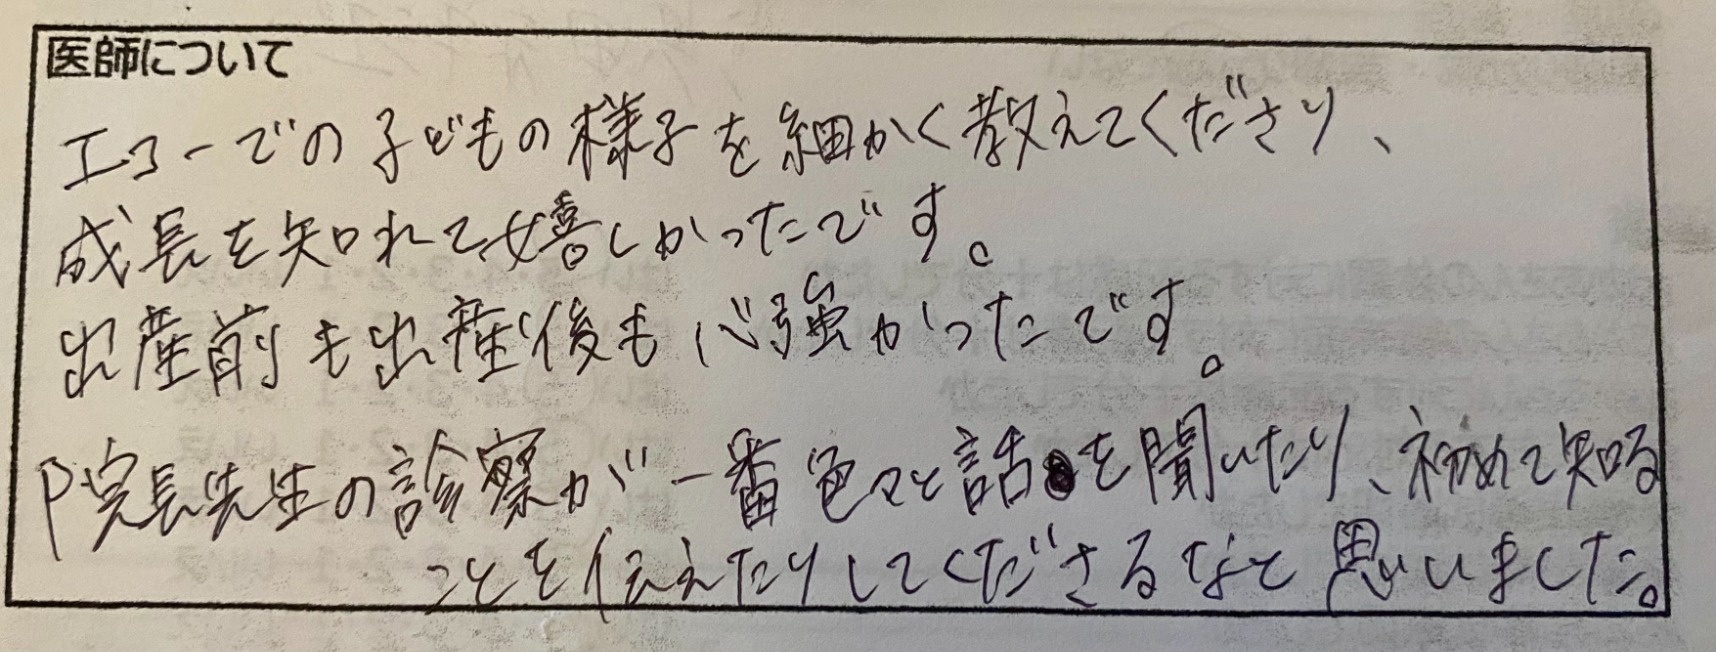 医師について
エコーでの子どもの様子を細かく教えてくださり、
成長を知れて嬉しかったです。
出産前も出産後も心強かったです。
院長先生の診察が一番色々と話を聞いたり、初めて知る
ことを伝えたりしてくださるなと思いました。